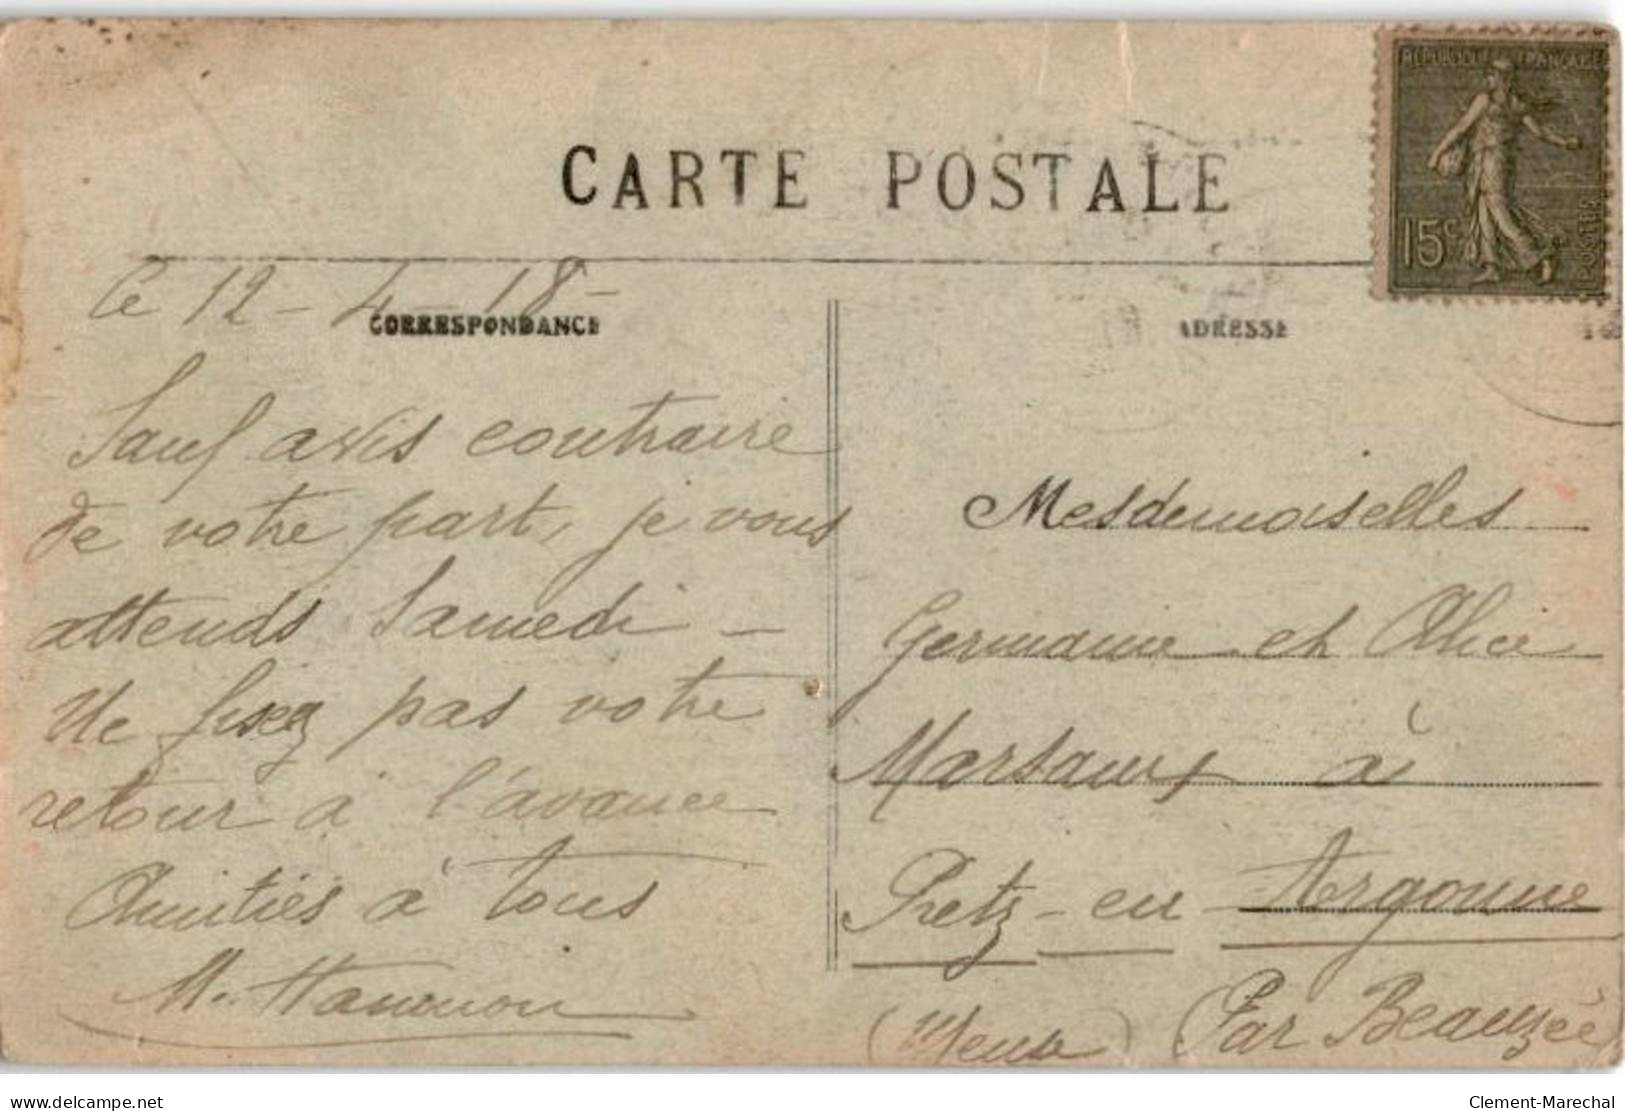 CARTE POSTALE
RÉPUBLIQUE FRANÇAISE
15c
POSTES
Ce 12 - 4 - 18 -
CORRESPONDANCE
ADRESSE
Sauf avis contraire
de votre part, je vous
attends Samedi -
Ne fixez pas votre
retour à l'avance
Amitiés à tous
Mesdemoiselles
Germaine et Alice
Marsaux à
Pretz-en-Argonne
(Meuse) (Par Beauzée)
delcampe.net
Clement-Marechal